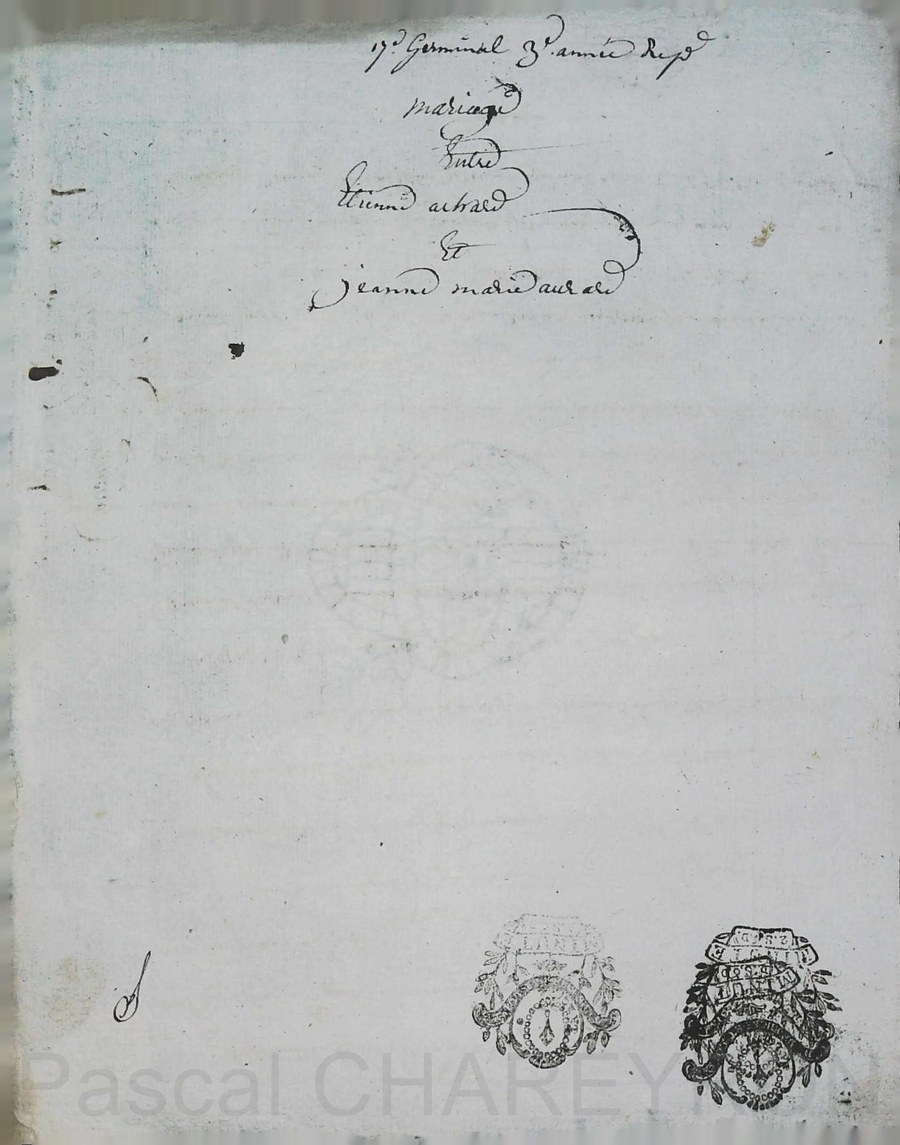 17e Germinal 3e année Rep
mariage
Entre
Etienne achard
Et
jeanne marie aurard
Pascal CHAREYRON